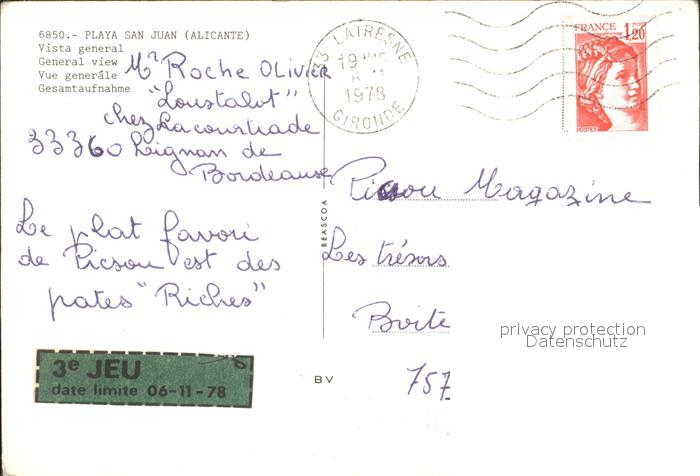 6850.- PLAYA SAN JUAN (ALICANTE)
Vista general
General view
Vue generâle
Gesamtaufnahme
Mr Roche OLIVIER
"Loustalot"
chez Lacourtiade
33360 Lignan de
Bordeause
Le plat favori
de Picsou est des
pates "Riches"
3e JEU
date limite 06-11-78
33 LAIRESNE
19 H
1978
GIRONDE
FRANCE 1,20
POSTES
BEASCOA
BV
Picsou Magazine
Les trésors
Boite
757
privacy protection
Datenschutz